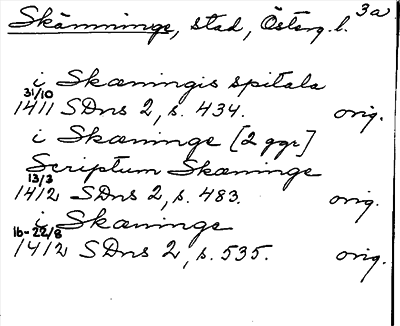 Skänninge, stad, Österg.l. 3a
i Skæningis spitala
31/10
1411 SDns 2, s. 434. orig.
i Skæninge [2 ggr]
Scriptum Skæninge
13/3
1412 SDns 2, s. 483. orig.
i Skæninge
16-22/8
1412 SDns 2, s. 535. orig.